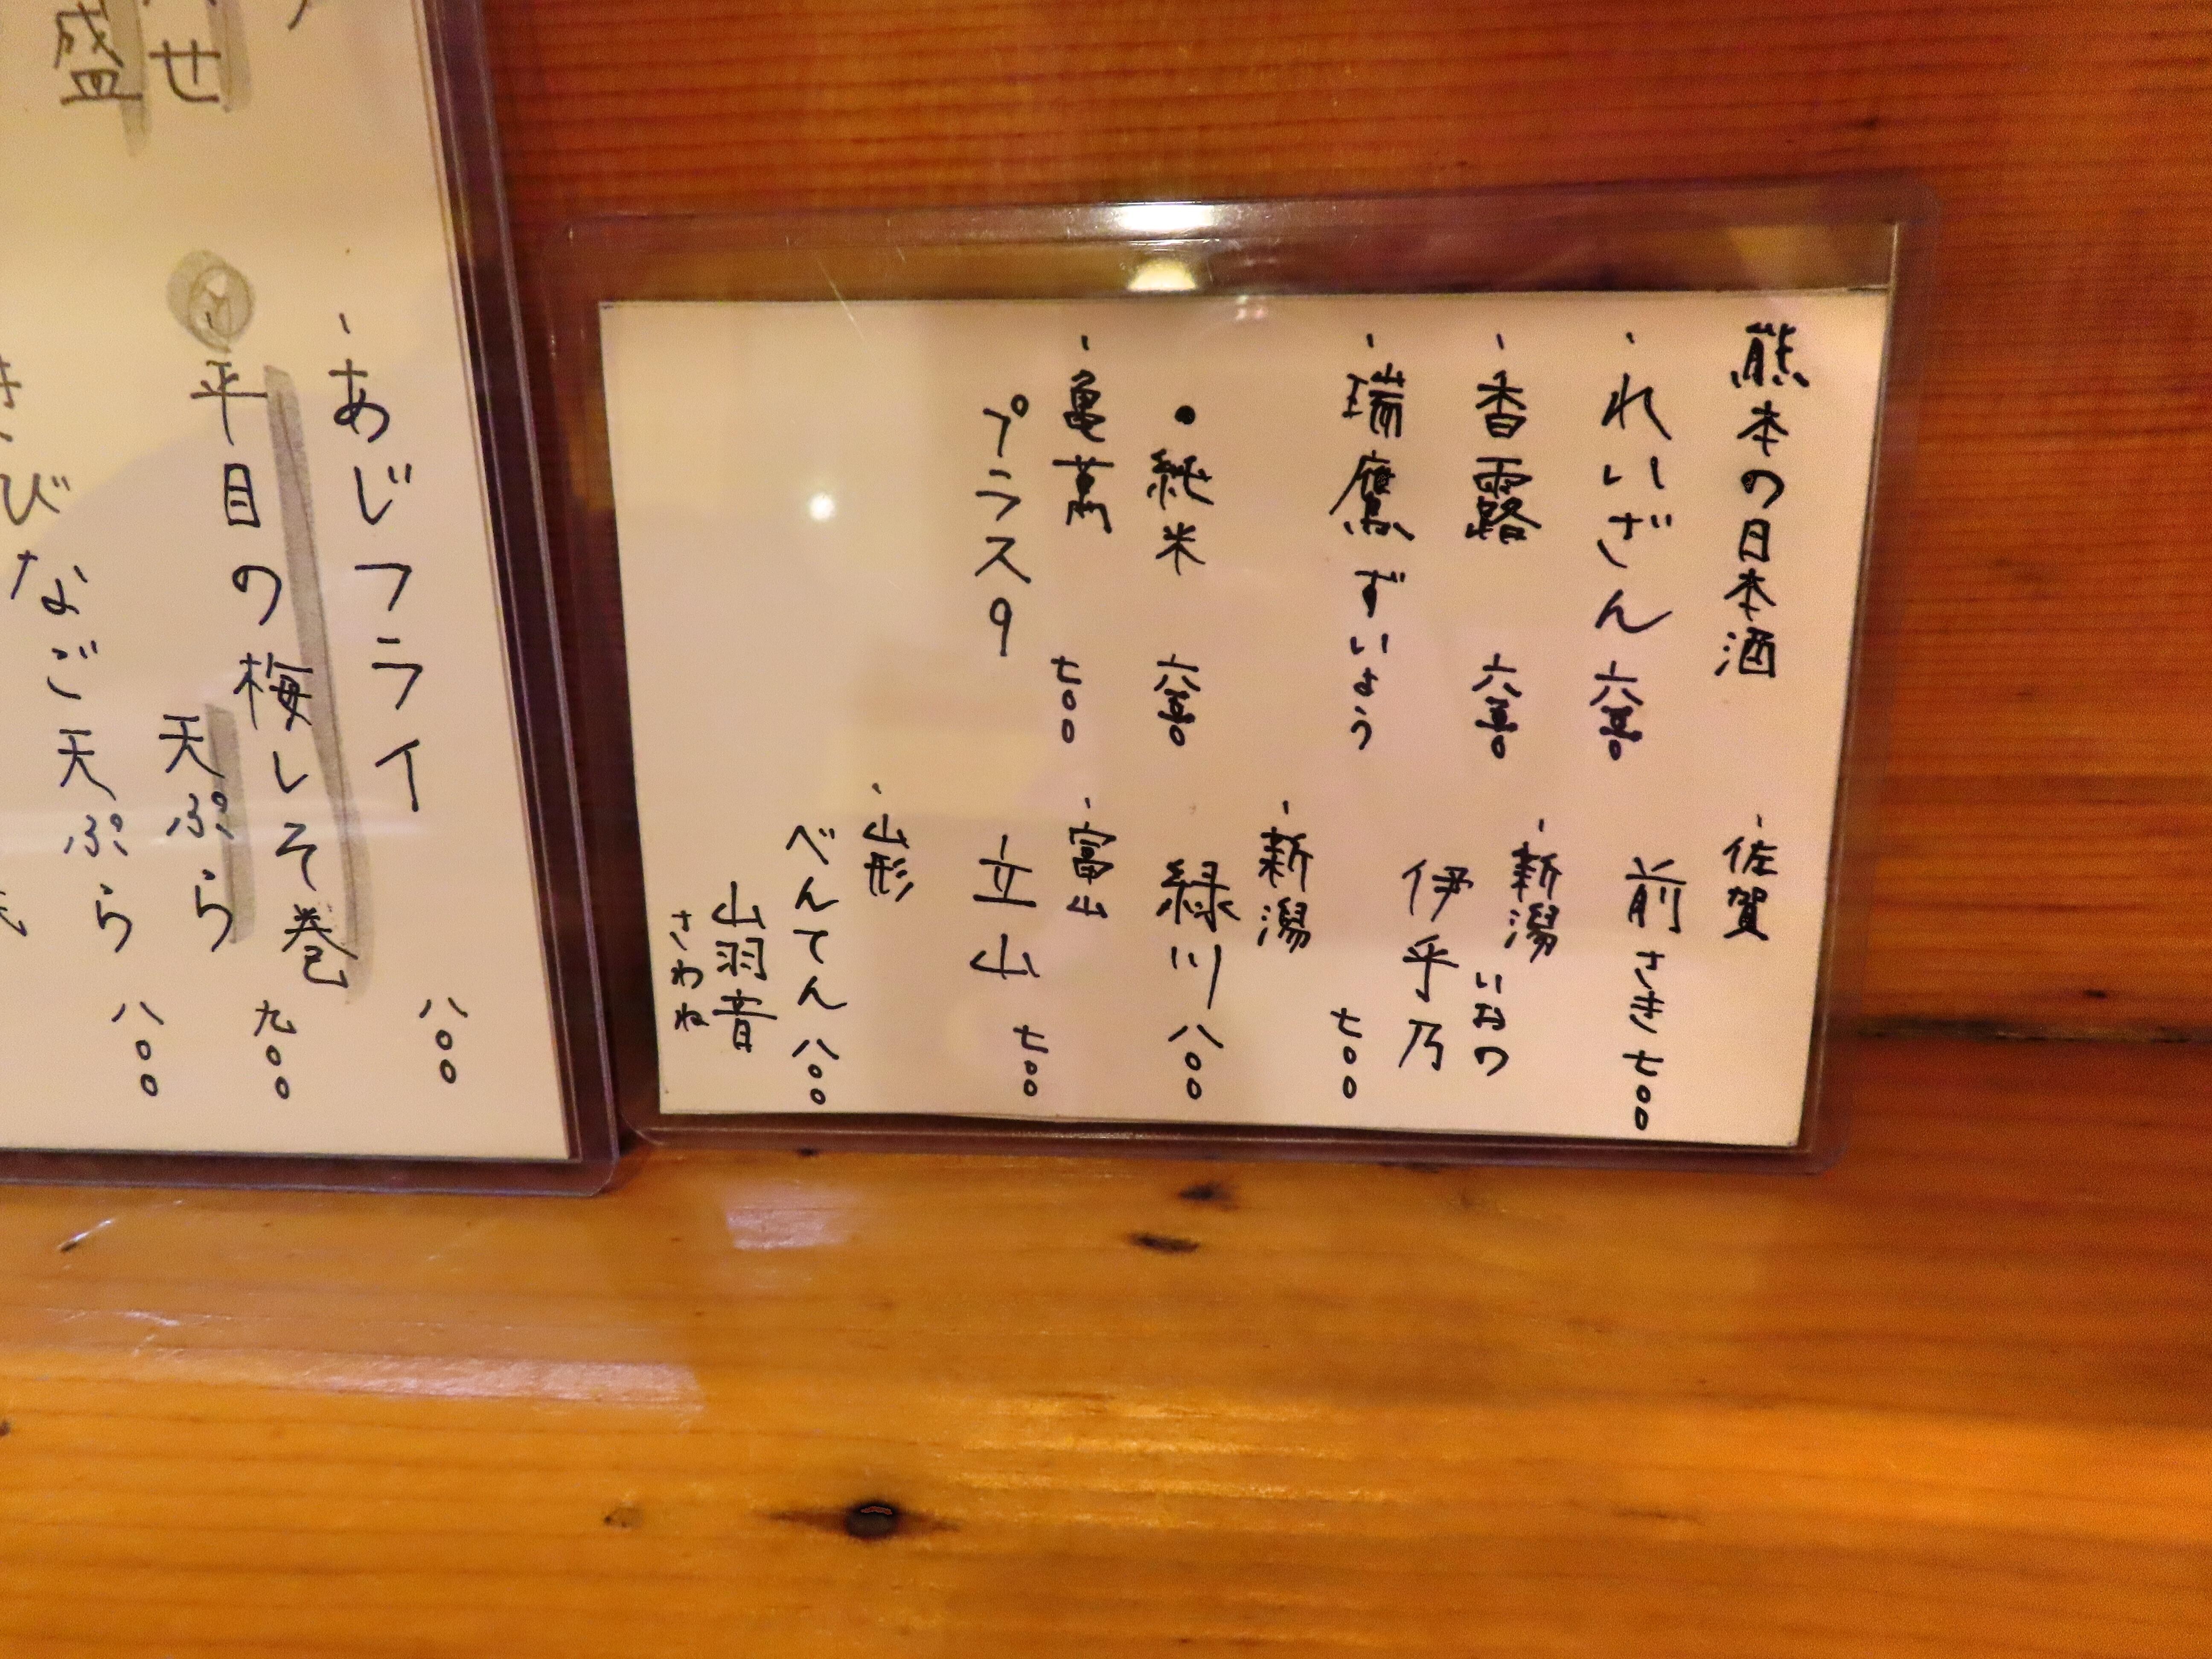 熊本の日本酒
、れいざん
、香露
、瑞鷹ずいよう
・純米
、亀萬 七〇〇
プラス9
、佐賀
前さき 七〇〇
、新潟
いおの
伊乎乃 七〇〇
、新潟
緑川 八〇〇
、富山
立山 七〇〇
、山形
べんてん 八〇〇
山羽音
さわね
、あじフライ 八〇〇
、平目の梅しそ巻
天ぷら 九〇〇
なご天ぷら 八〇〇
せ
盛